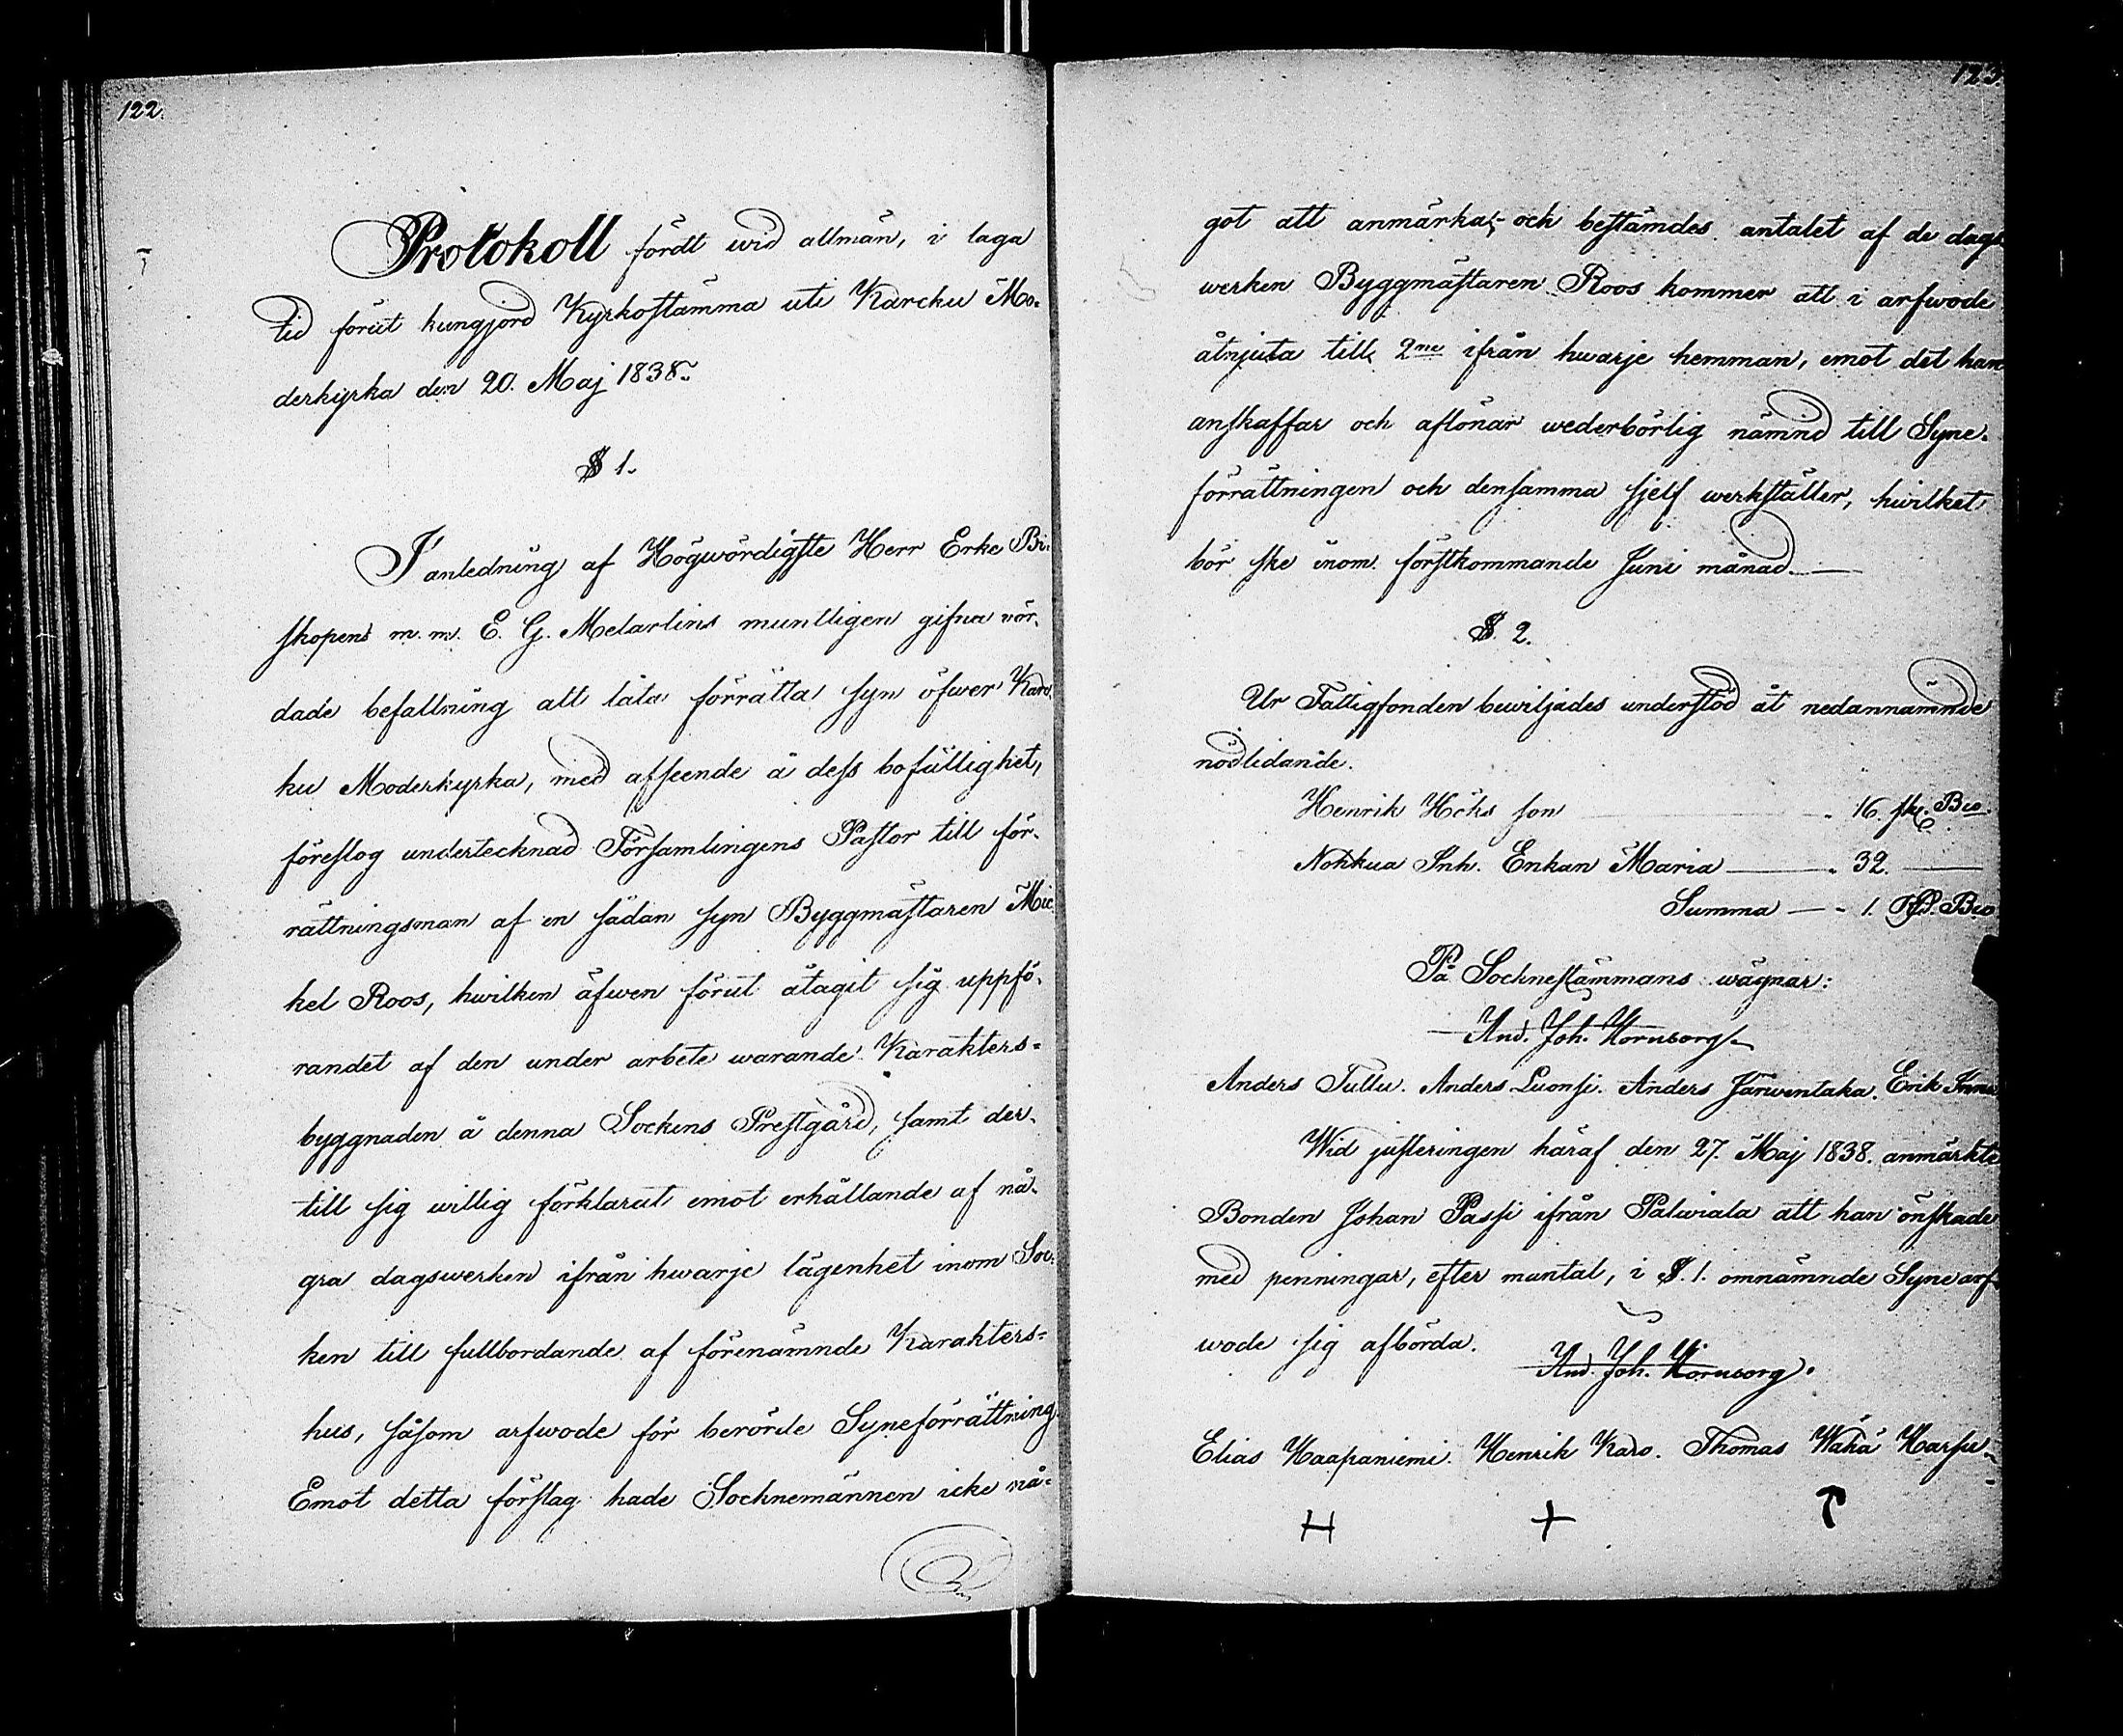 122.
Protokoll fördt wid allmän, i laga
tid förut kungjord Kyrkostämma uti Karcku Mo-
derkyrka den 20. Maj 1838.
§ 1.
I anledning af Högwördigste Herr Erke Bi-
skopens m. m. E. G. Melartins muntligen gifna vör-
dade befallning att låta förrätta syn öfwer Karc-
ku Moderkyrka, med afseende å dess bofällighet,
föreslog undertecknad Församlingens Pastor till för-
rättningsman af en sådan syn Byggmästaren Mic-
kel Roos, hwilken äfwen förut åtagit sig uppfö-
randet af den under arbete warande Karakters-
byggnaden å denna Sockens Prestgård, samt der-
till sig willig förklarat emot erhållande af nå-
gra dagswerken ifrån hwarje lägenhet inom Soc-
ken till fullbordande af förenämnde Karakters-
hus, såsom arfwode för berörde Syneförrättning
Emot detta förslag hade Socknemännen icke nå-
123.
got att anmärka; och bestämdes antalet af de dags
werken Byggmästaren Roos kommer att i arfwode
åtnjuta till 2ne ifrån hwarje hemman, emot det han
anskaffar och aflönar wederbörlig nämnd till Syne-
förrättningen och densamma sjelf werkställer, hwilket
bör ske inom förstkommande Juni månad.
§. 2.
Ur Fattigfonden bewiljades understöd åt nedannämnde
nödlidande.
Henrik Höks son 16. sk. Bco.
Nohkua Inh. Enkan Maria 32.
Summa 1. Rd. Bco
På Socknestämmans wägnar:
And. Joh. Hornborg.
Anders Tullu. Anders Luonsi. Anders Järwentaka. Erik
Wid justeringen häraf den 27. Maj 1838. anmärkte
Bonden Johan Passi ifrån Palwiala att han önskade
med penningar, efter mantal, i §. 1. omnämnde Synearf-
wode sig afbörda.
And. Joh. Hornborg.
Elias Haapaniemi. Henrik Karo. Thomas Wähä Harsu
H +